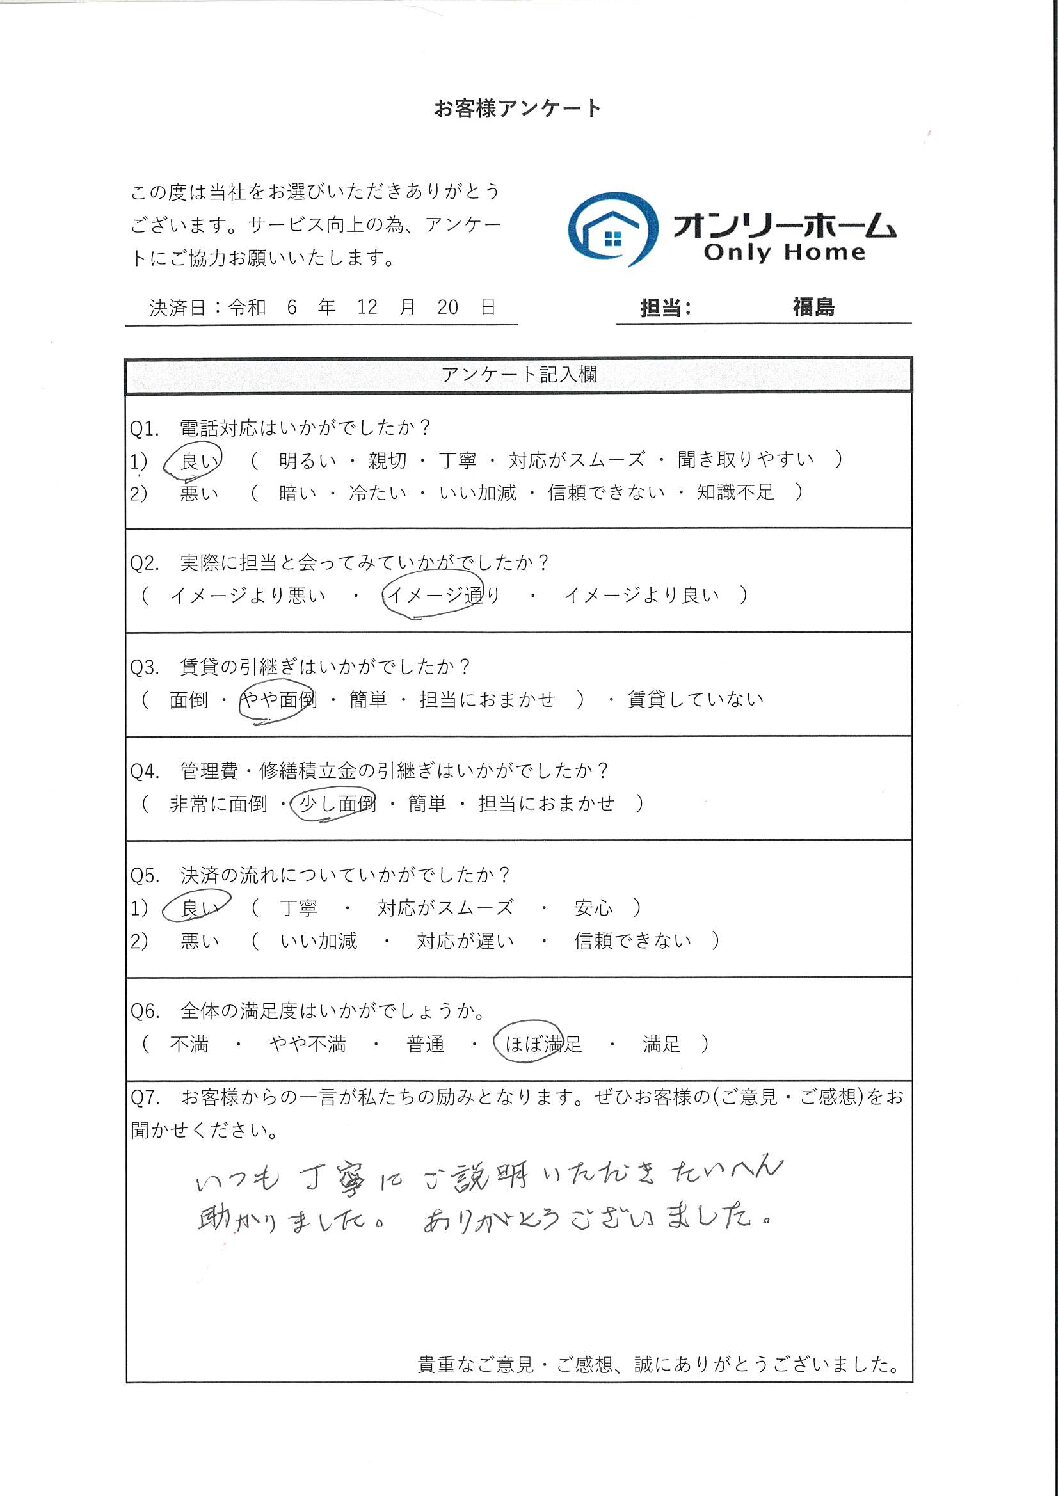 お客様アンケート
この度は当社をお選びいただきありがとう
ございます。サービス向上の為、アンケー
トにご協力お願いいたします。
オンリーホーム
Only Home
決済日：令和 6 年 12 月 20 日
担当： 福島
アンケート記入欄
Q1. 電話対応はいかがでしたか？
1) 良い （ 明るい ・ 親切 ・ 丁寧 ・ 対応がスムーズ ・ 聞き取りやすい ）
2) 悪い （ 暗い ・ 冷たい ・ いい加減 ・ 信頼できない ・ 知識不足 ）
Q2. 実際に担当と会ってみていかがでしたか？
（ イメージより悪い ・ イメージ通り ・ イメージより良い ）
Q3. 賃貸の引継ぎはいかがでしたか？
（ 面倒 ・ やや面倒 ・ 簡単 ・ 担当におまかせ ） ・ 賃貸していない
Q4. 管理費・修繕積立金の引継ぎはいかがでしたか？
（ 非常に面倒 ・ 少し面倒 ・ 簡単 ・ 担当におまかせ ）
Q5. 決済の流れについていかがでしたか？
1) 良い （ 丁寧 ・ 対応がスムーズ ・ 安心 ）
2) 悪い （ いい加減 ・ 対応が遅い ・ 信頼できない ）
Q6. 全体の満足度はいかがでしょうか。
（ 不満 ・ やや不満 ・ 普通 ・ ほぼ満足 ・ 満足 ）
Q7. お客様からの一言が私たちの励みとなります。ぜひお客様の(ご意見・ご感想)をお
聞かせください。
いつも丁寧にご説明いただきたいへん
助かりました。ありがとうございました。
貴重なご意見・ご感想、誠にありがとうございました。